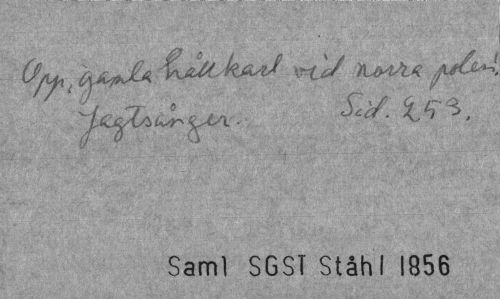 Opp, gamla hållkarl vid norra polen!
Jagtsånger. Sid. 253.
Saml SGST Ståhl 1856